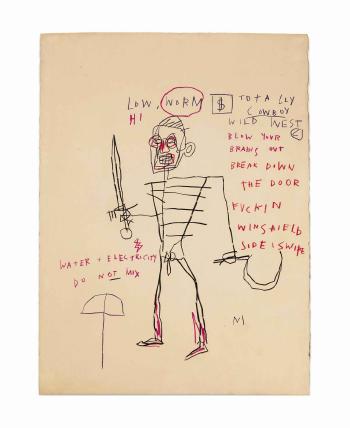 LOW, WORM $ TOTALLY
HI COWBOY
WILD WEST
BLOW YOUR
BRAINS OUT
BREAK DOWN
THE DOOR
FUCKIN
WINGFIELD
SIDESWIPE
WATER + ELECTRICITY
DO NOT MIX
M